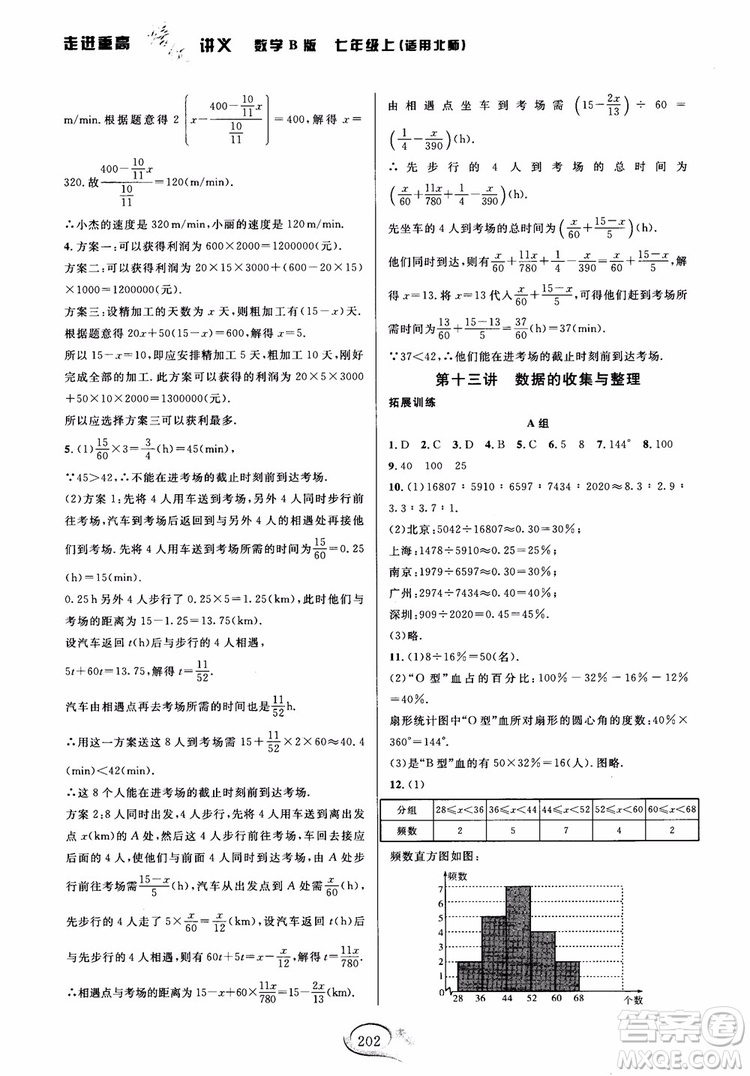 走进重高
讲义 数学B版 七年级上(适用北师)
m/min.根据题意得 2(x-(400-10/11x)/(10/11))=400,解得 x=
320.故(400-10/11x)/(10/11)=120(m/min).
∴小杰的速度是 320 m/min,小丽的速度是 120 m/min.
4.方案一:可以获得利润为 600×2000=1200000(元).
方案二:可以获得利润为 20×15×3000+(600-20×15)
×1000=1200000(元).
方案三:设精加工的天数为 x 天,则粗加工有(15-x)天.
20x+50(15-x)=600,解得 x=5.
所以 15-x=10,即应安排精加工 5 天,粗加工 10 天,刚好
完成全部的加工,可以获得利润为 20×5×3000
+50×10×2000=1300000(元).
所以应选择方案三可获利最多.
5.(1)15/60×3=3/4(h)=45(min).
∵45>42,∴不能在进考场的截止时刻前到达考场.
(2)方案 1:先将 4 人用车送到考场,另外 4 人同时步行前往
考场,汽车到考场后返回到与另外 4 人的相遇处再载他们
到考场.先将 4 人用车送到考场所需的时间为15/60=0.25
(h)=15(min).
0.25 h 另外 4 人步行了 1.25 km,此时他们与
考场的距离为 15-1.25=13.75(km).
设汽车返回 t(h)后与步行的 4 人相遇,
5t+60t=13.75,解得 t=11/52.
汽车由相遇点再去考场所需的时间也是11/52(h).
∴用这一方案送这 8 人到考场共需 15+11/52×2×60≈40.4
(min)<42(min).
∴这 8 个人能在进考场的截止时刻前到达考场.
方案 2:8 人同时出发,4 人步行,先将 4 人用车送到离出发
点 x(km)的 A 处,然后这 4 人步行前往考场,车回去接应
后面的 4 人,使他们跟前面 4 人同时到达考场.由 A 处步行
到考场需(15-x)/5(h),汽车从出发点到 A 处需x/60(h),
先步行的 4 人走了 5×x/60(km),设汽车返回 t(h)后
与先步行的 4 人相遇,则有 60t+5t=x-x/12,解得 t=11x/780.
∴相遇点与考场的距离为 15-x+60×11x/780=15-2x/13(km).
由相遇点坐车到考场需(15-2x/13)÷60=
(1/4-x/390)(h).
∴先步行的 4 人到考场的总时间为
(x/60+11x/780+1/4-x/390)(h).
先坐车的 4 人到考场的总时间为(x/60+(15-x)/5)(h).
他们同时到达,则有x/60+11x/780+1/4-x/390=x/60+(15-x)/5,解
得 x=13.将 x=13 代入x/60+(15-x)/5,可得他们赶到考场所
需时间为13/60+(15-13)/5=37/60(h)=37(min).
∵37<42,∴他们能在进考场的截止时刻前到达考场.
第十三讲 数据的收集与整理
拓展训练
A 组
1.D 2.C 3.D 4.B 5.C 6.5 8 7.144° 8.100
9.40 100 25
10.(1)16807∶5910∶6757∶7434∶2020≈8.3∶2.9∶
3.3∶3.7∶1.
(2)北京:5042÷16807≈30%.
上海:1478÷5910≈25%.
南京:2432÷6757≈36%.
广州:2974÷7434≈40%.
深圳:909÷2020=45%.
(3)略.
11.(1)8÷16%=50(名).
(2)“O 型”血占的百分比:100%-16%-14%-30%
=40%.
扇形统计图中“O 型”血所对扇形的圆心角的度数:40%×
360°=144°.
(3)是“B 型”血的有 50×30%=15(人).
12.(1)
分组 28≤x<36 36≤x<44 44≤x<52 52≤x<60 60≤x<68
频数 2 5 7 4 2
频数直方图如图:
频数
7
6
5
4
3
2
1
0
28 36 44 52 60 68 个数
202
答案圈
MXQE.COM